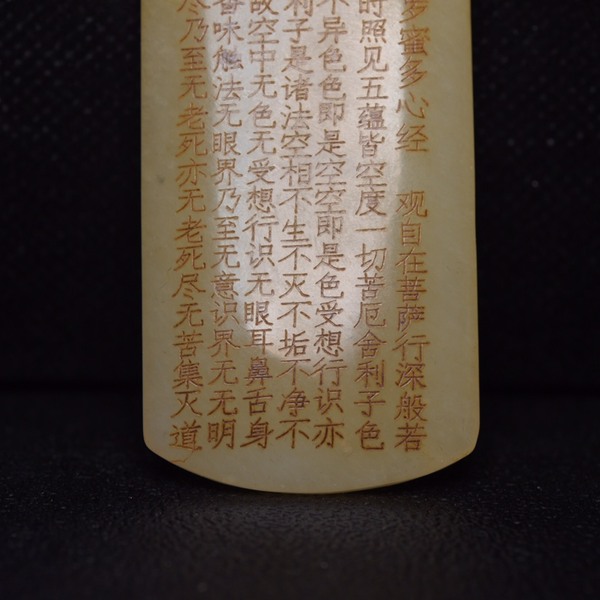 罗蜜多心经 观自在菩萨行深般若
时照见五蕴皆空度一切苦厄舍利子色
不异色色即是空空即是色受想行识亦
利子是诸法空相不生不灭不垢不净不
故空中无色无受想行识无眼耳鼻舌身
香味触法无眼界乃至无意识界无无明
尽乃至无老死亦无老死尽无苦集灭道